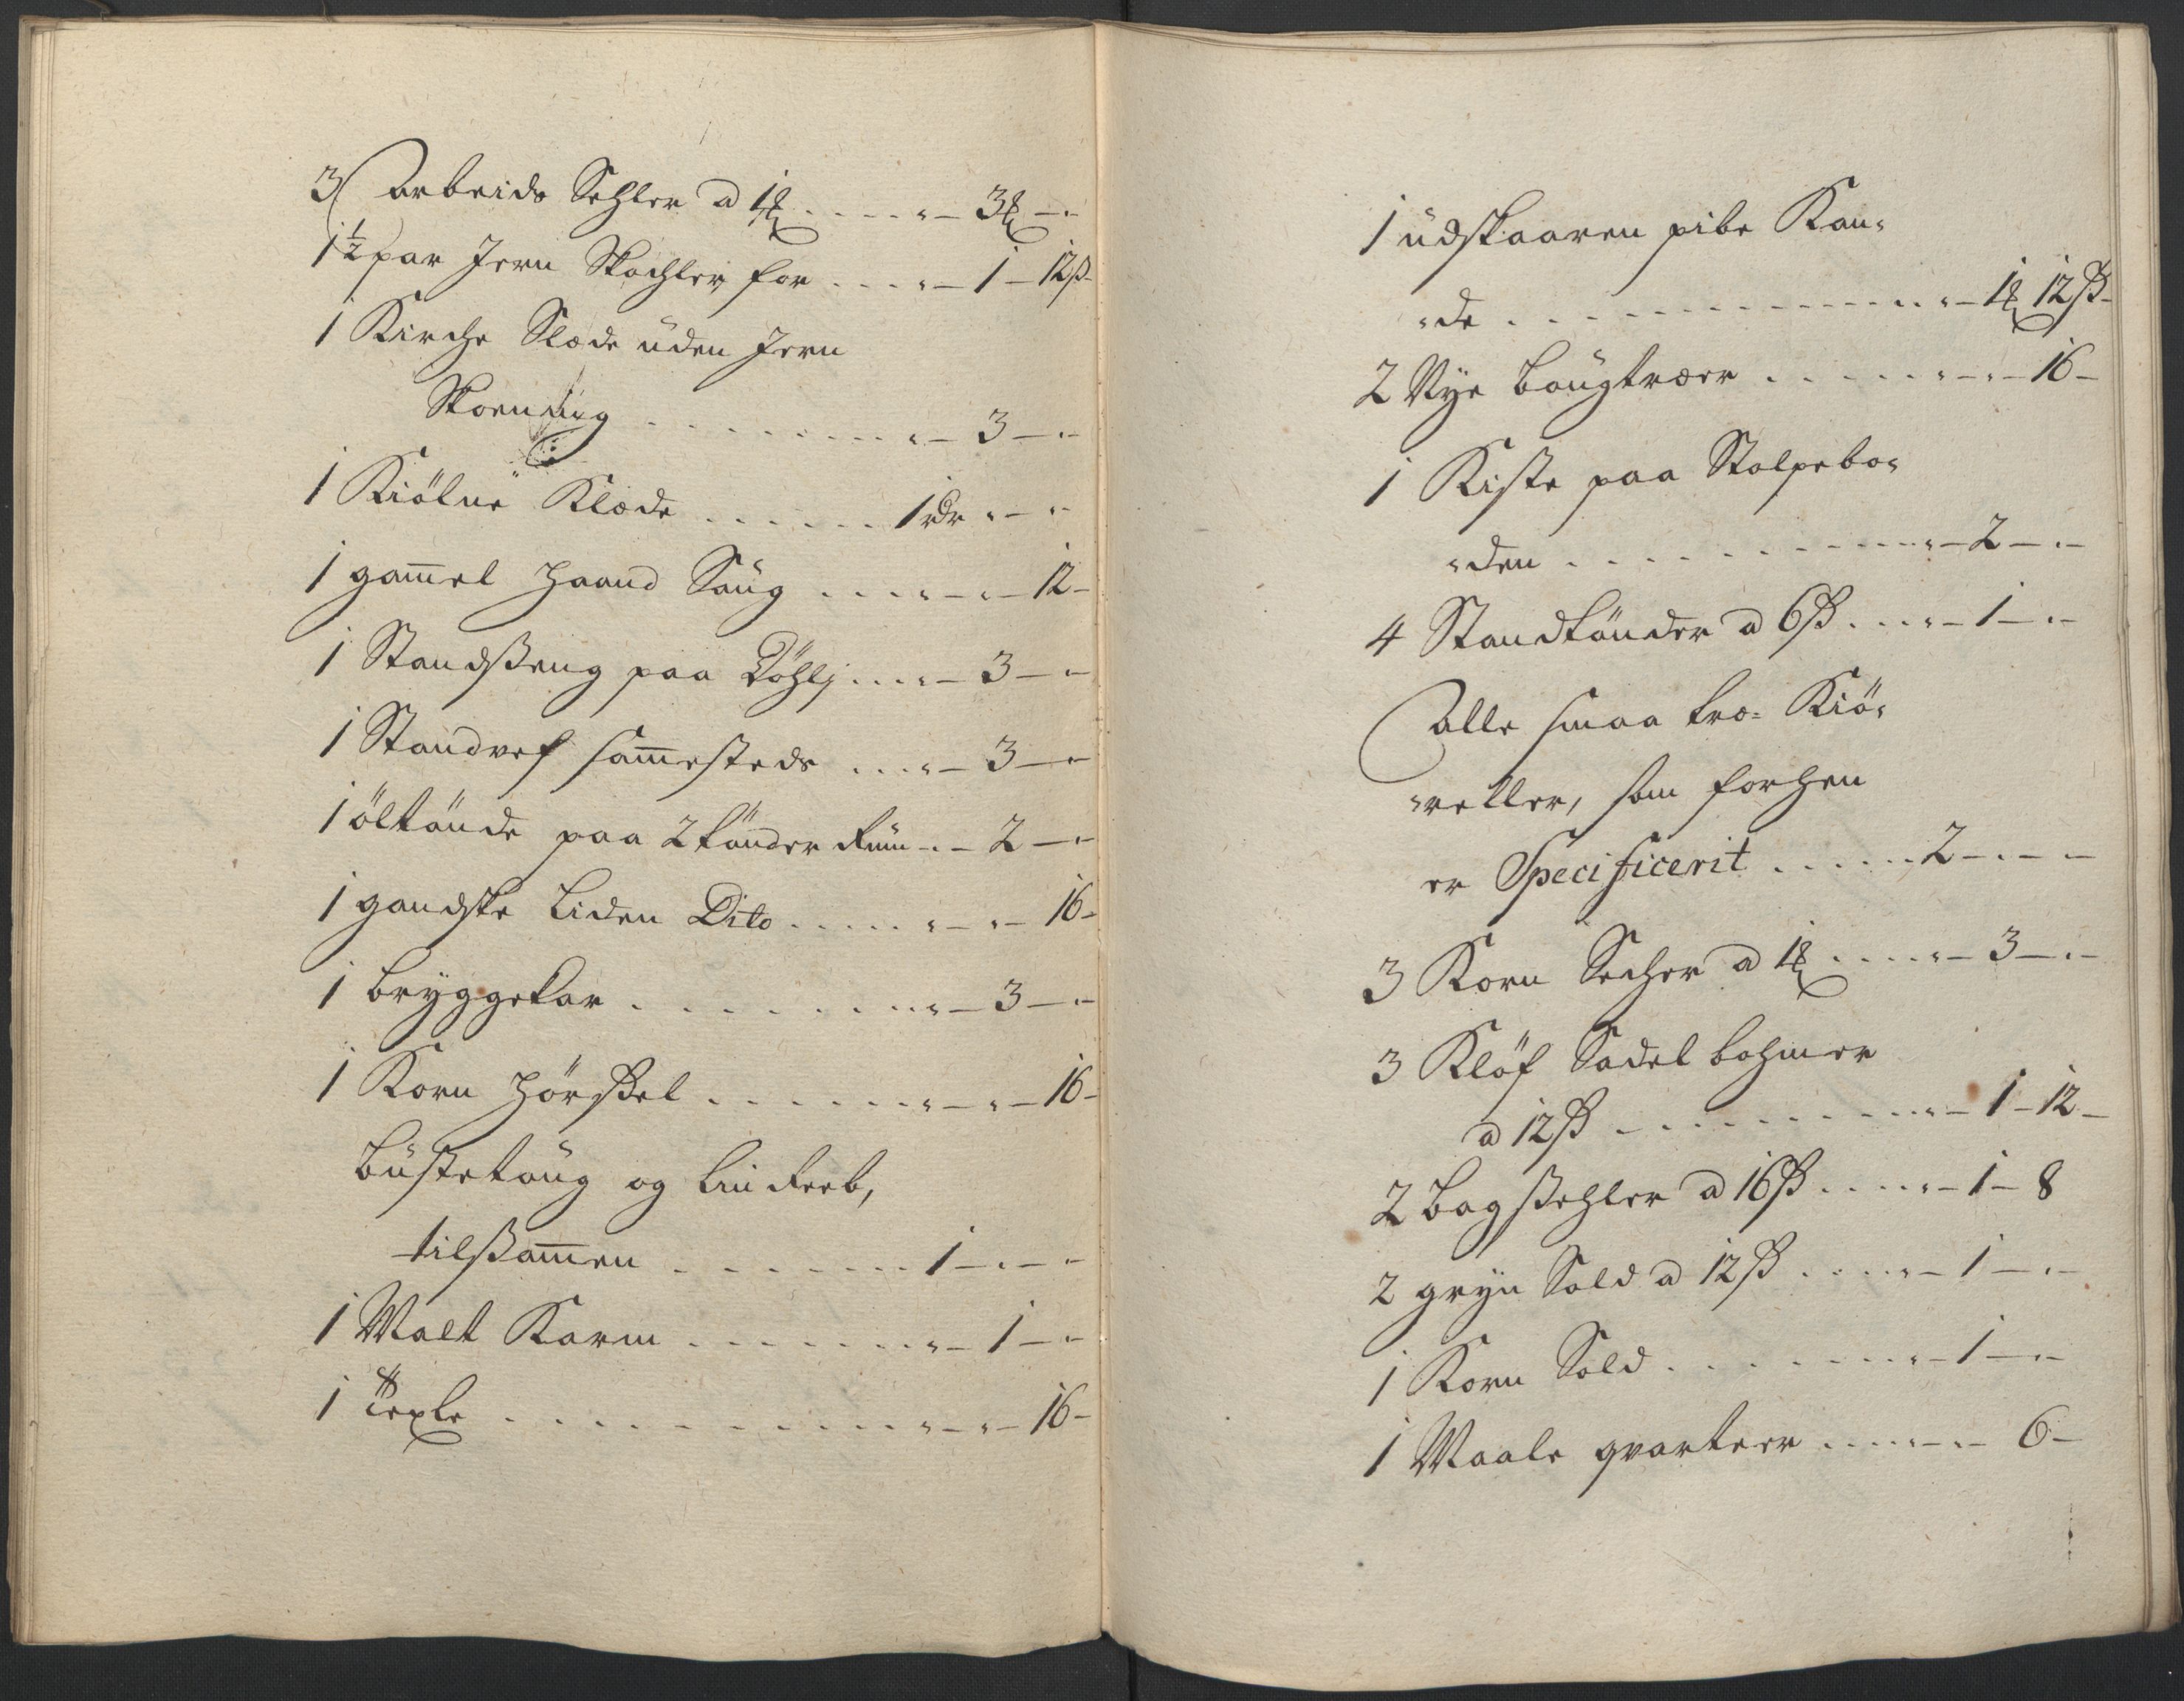 3 Arbeids Sehler a 1 ℔ . . . . " – 3 ℔ – "
1½ par Jern Skachler for . . . . " – 1 – 12 ß –
1 Kirche Slæde uden Jern
Skoening . . . . . . . . " – 3 – " –
1 Kiölne Klæde . . . . . . 1 rdr " – "
1 gam̄el Haand Saug . . . . " – " – 12 –
1 Standßeng paa Döhlj . . . " – 3 – " –
1 Standref sam̄esteds . . . " – 3 – "
1 öltönde paa 2 tönder Rüm " – 2 – "
1 gandske liden Dito . . . . . " – " – 16 –
1 bryggekar . . . . . . . . . " – 3 – " –
1 Korn Hörßel . . . . . . . " – " – 16 –
Büstetöug og Lin Reeb,
tilßam̄en . . . . . . . . 1 – " – "
1 Malt Karm . . . . . . . " – 1 – "
1 Texle . . . . . . . . . . . " – " – 16 –
1 udskaaren pibe Kan„
„de . . . . . . . . . . . . . " – 1 ℔ 12 ß –
2 Nye bougtræer . . . . . " – " – 16 –
1 Kiste paa Stolpebo„
„den . . . . . . . . . . . " – 2 – " –
4 Standtönder a 6 ß . . . " – 1 – " –
Alle smaa træ= Kiö„
„reller, som forhen
er Specificerit . . . . . . 2 – " – " –
3 Korn Secher a 1 ℔ . . . . " – 3 – " –
3 Klöf Sadel bohmer
a 12 ß . . . . . . . . . . " – 1 – 12 –
2 bagßehler a 16 ß . . . . " – 1 – 8
2 gryn Sold a 12 ß . . . . " – 1 – " –
1 Korn Sold . . . . . . . . " – 1 – " –
1 Maale qvarteer . . . . " – " – 6 –